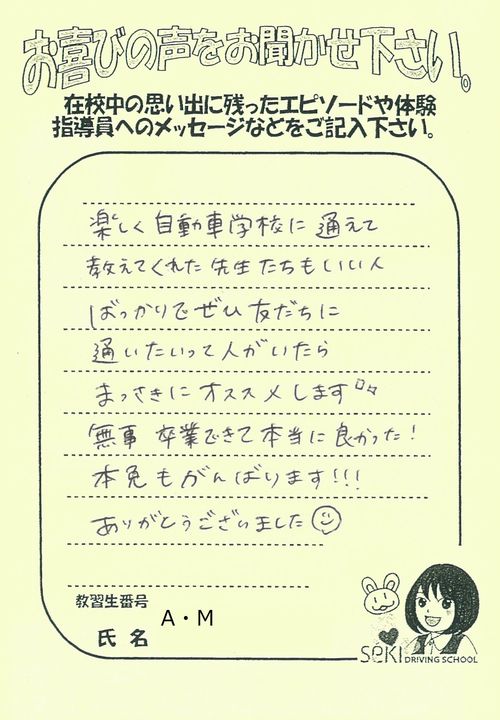 お喜びの声をお聞かせ下さい。
在校中の思い出に残ったエピソードや体験
指導員へのメッセージなどをご記入下さい。
楽しく自動車学校に通えて
教えてくれた先生たちもいい人
ばっかりでぜひ友だちに
通いたいって人がいたら
まっさきにオススメします
無事卒業できて本当に良かった!
本免もがんばります!!!
ありがとうございました
教習生番号
氏名 A・M
SEKI DRIVING SCHOOL